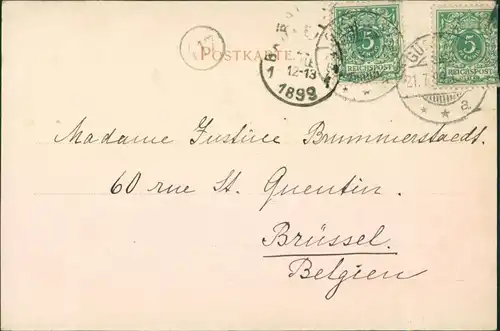 POSTKARTE.
17
12-13
1899
1
4
5
REICHSPOST
5
REICHSPOST
21.7.
a.
Madame Justine Brummerstaedt.
60 rue St. Quentin.
Brüssel.
Belgien